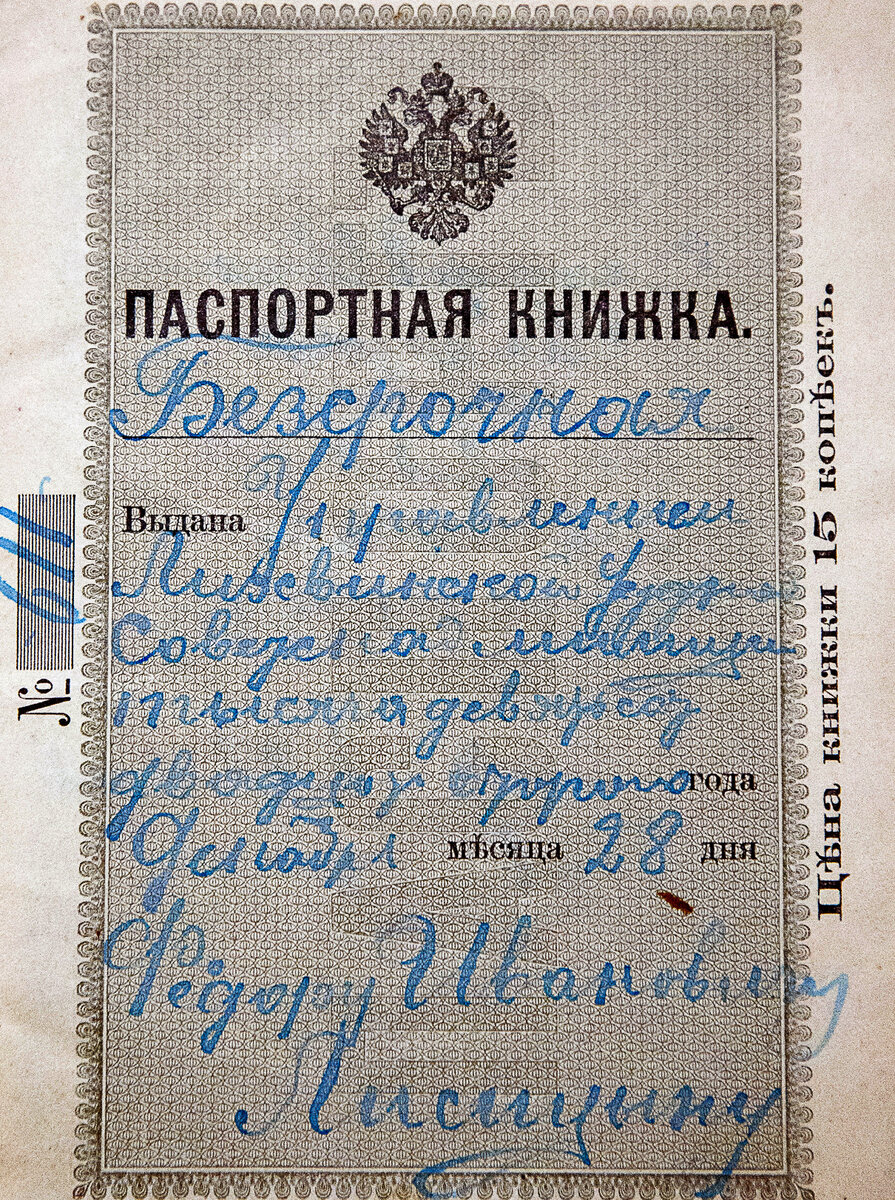 ПАСПОРТНАЯ КНИЖКА.
Безсрочная
Выдана Управлением
Лихвинской Уездной
Советской милиции
тысяча девятсот
двадцать второго года
Декабря мѣсяца 28 дня
Фёдору Ивановичу
Лисицыну
№ 611
Цѣна книжки 15 копѣекъ.